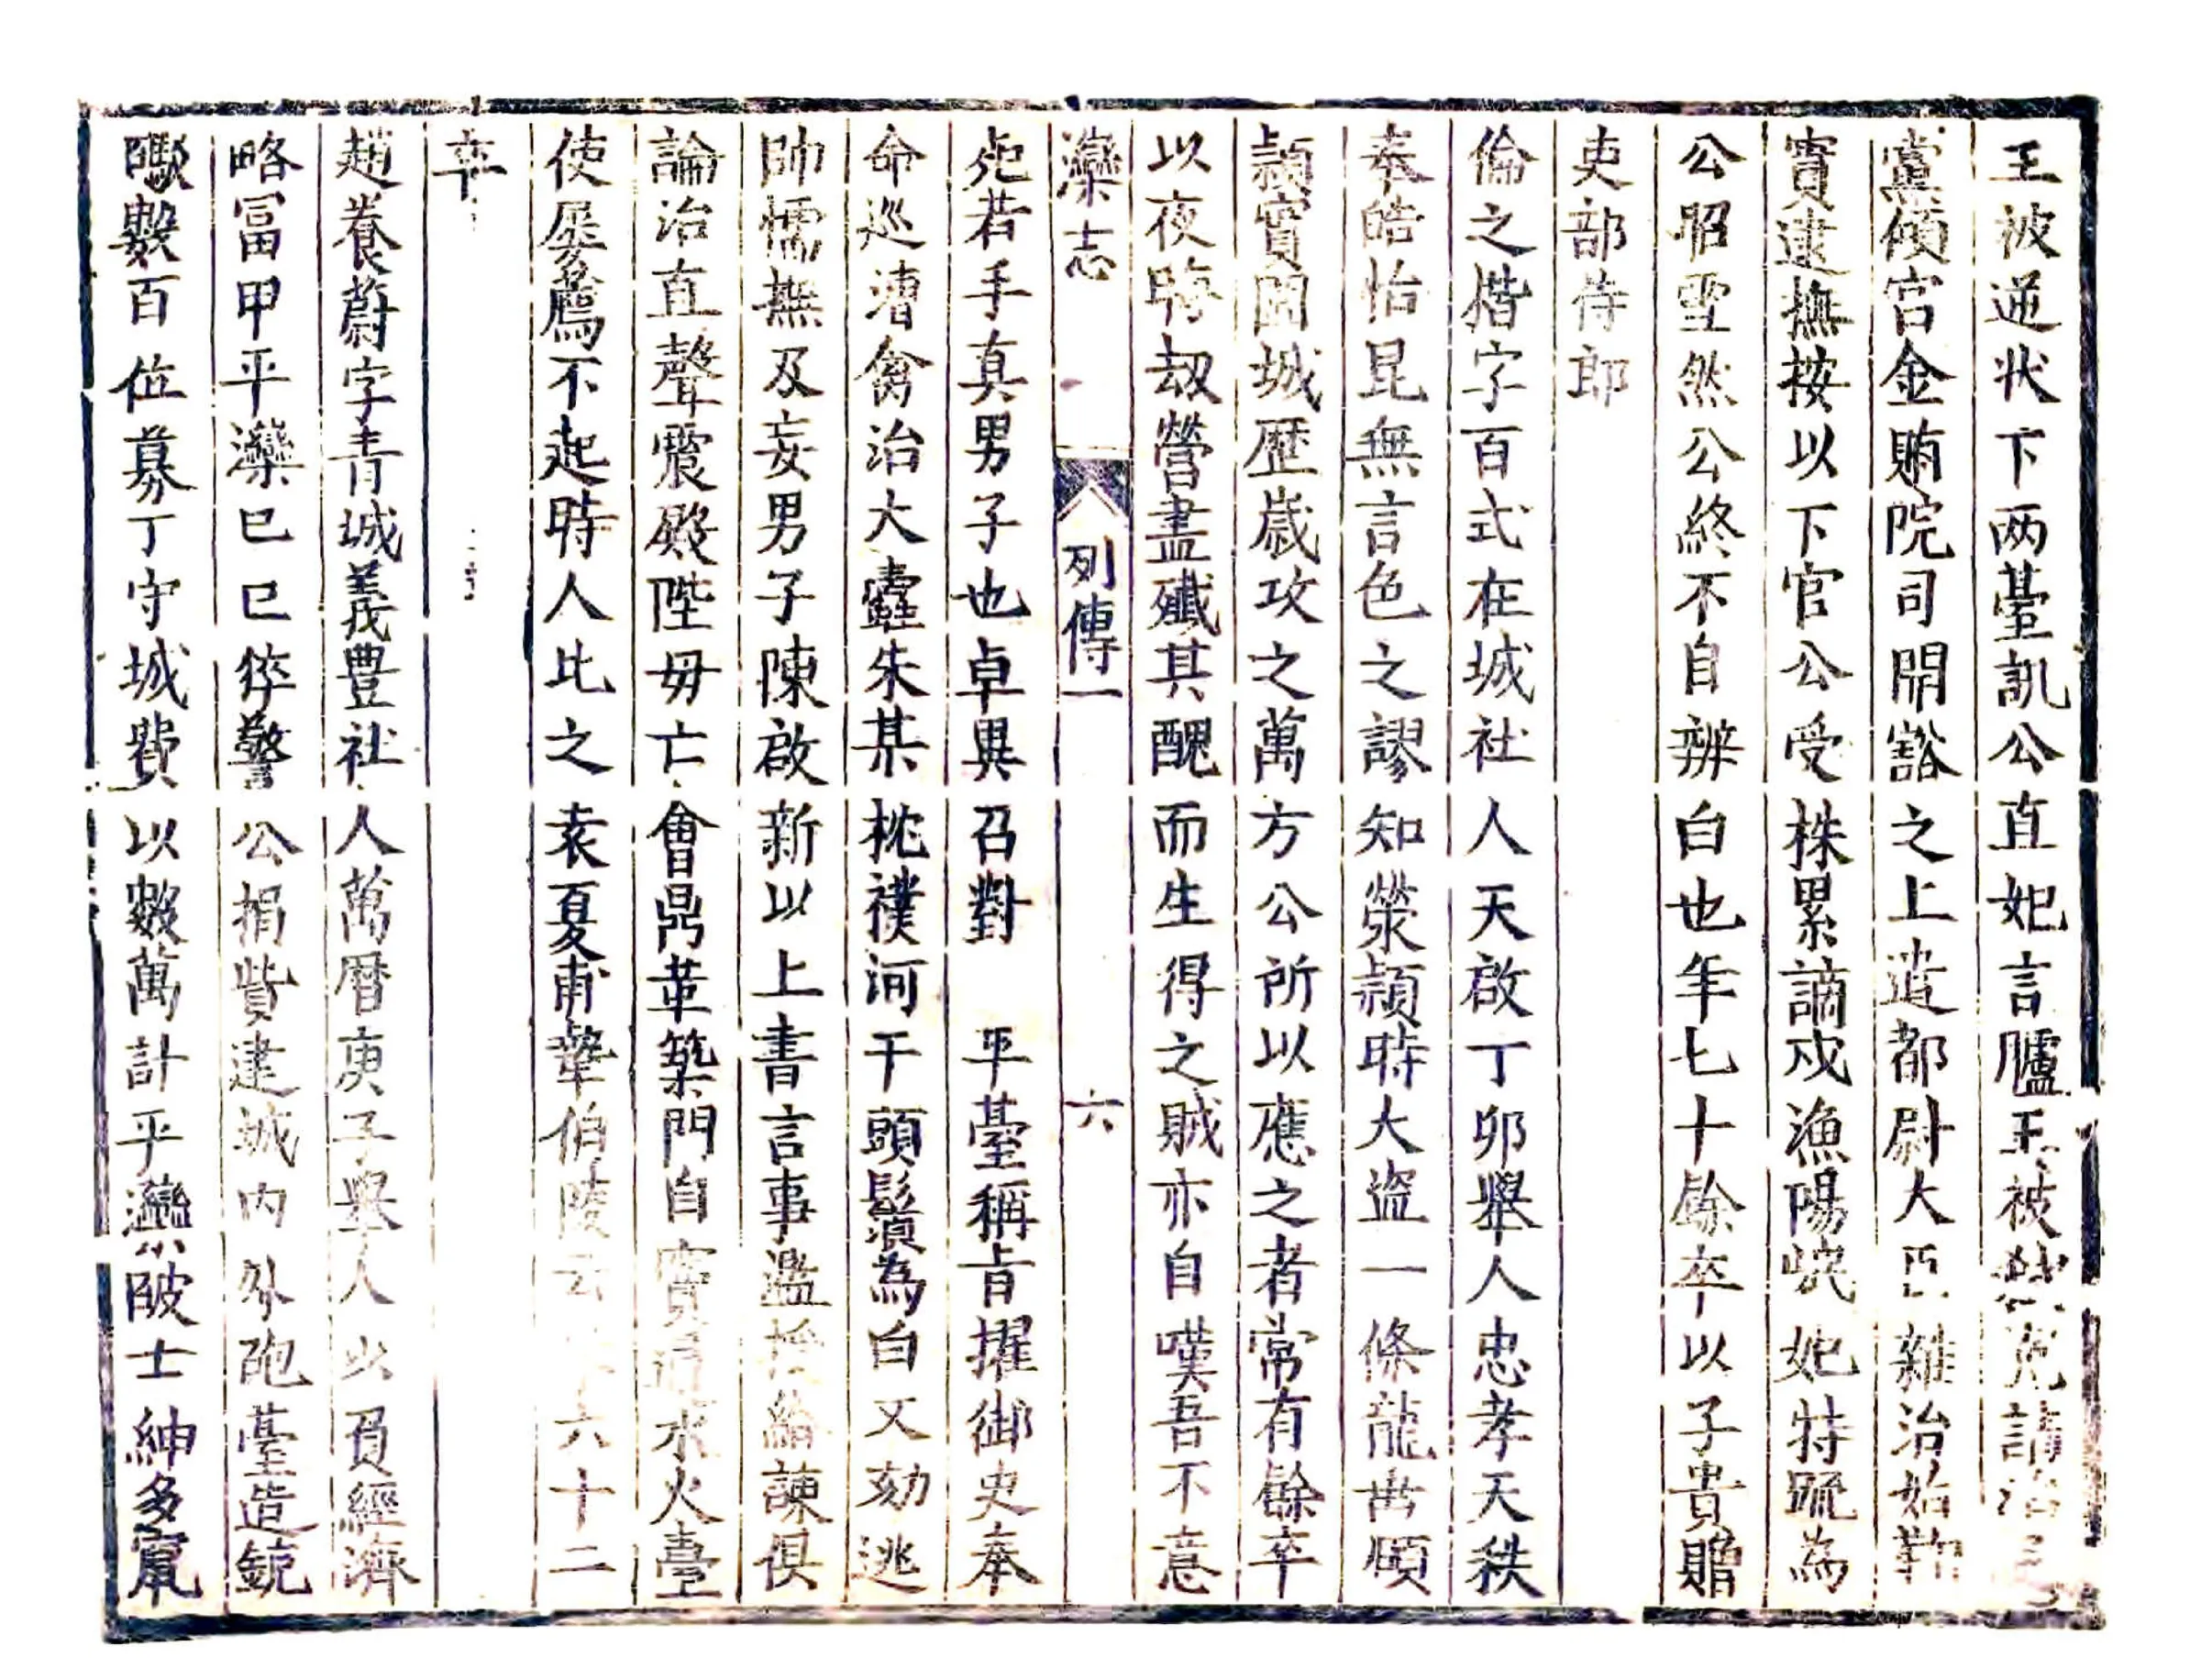 王被逆状下两臺訊公直妃言臚王被免請治
黨傾宫金賄院司開豁之上遣都尉大雜治始勒
實逮撫按以下官公受株累謫戍漁陽妃特疏為
公昭雪然公終不自辨白也年七十餘卒以子貴贈
吏部侍郎
倫之楷字百式在城社人天啟丁卯舉人忠孝天秩
奉皓怡昆無言色之謬知滎頴時大盜一條龍嵩頋
頴實圖城歷歲攻之萬方公所以應之者常有餘卒
以夜嗨刼營盡殲其醜而生得之賊亦自嘆吾不意
灤志 列傳一 六
兂若手真男子也卓異召對 平臺稱旨擢御史奉
命巡漕禽治大蠧朱某枕襆河干頭鬚為白又劾逃
帥懦撫及妄男子陳啟新以上書言事濫授給諫俱
論治直聲震殿陛毋亡會鼎革築門自竇通水火臺
使屡薦不起時人比之袁夏甫鞏伯陵云六十二
卒
趙養蔚字青城義豐社人萬曆庚子舉人少負經濟
略冨甲平灤巳巳猝警公捐貲建城内外砲臺造銃
歐數百位募丁守城費以數萬計平灤陂士紳多竄